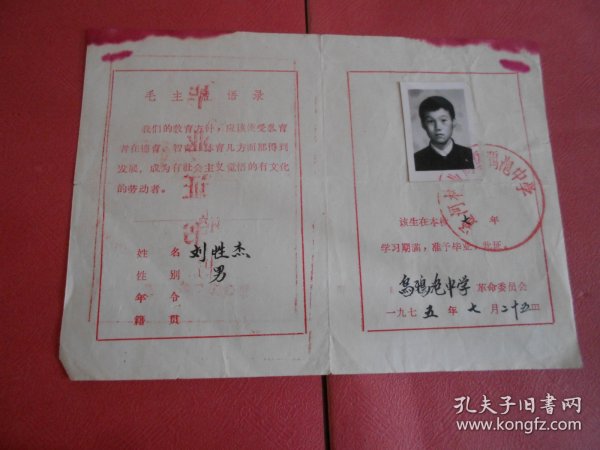 毛主席语录
我们的教育方针，应该使受教育
者在德育、智育、体育几方面都得到
发展，成为有社会主义觉悟的有文化
的劳动者。
姓 名 刘胜杰
性 别 男
年 令
籍 贯
该生在本校 七 年
学习期满，准予毕业，此证。
乌鸦泡中学 革命委员会
一九七五年七月二十五日
中学
孔夫子旧书网
www.kongfz.com